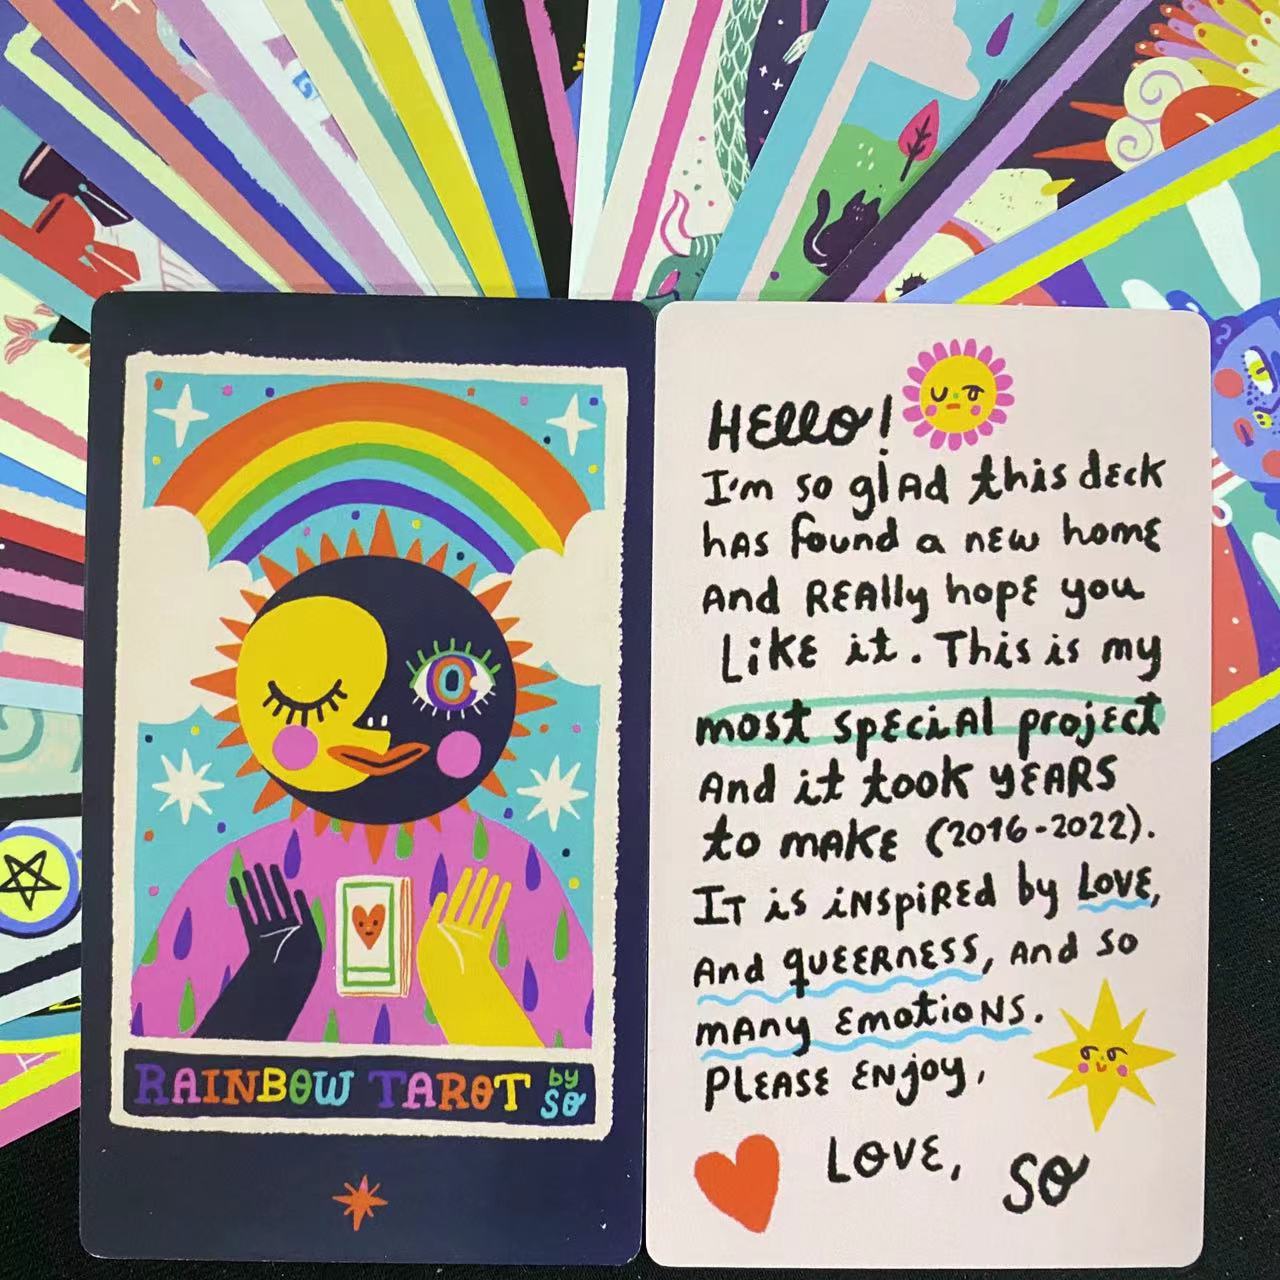 RAINBOW TAROT by SO
HELLO!
I'm so glad this deck
has found a new home
And REAlly hope you
LiKE it. This is my
most speciAl project
And it took yEARS
to mAKE (2016-2022).
IT is iNspiREd by LOVE,
And quEERNESS, And so
mAny EmotioNS.
PLEASE ENjoy,
LOVE, SO